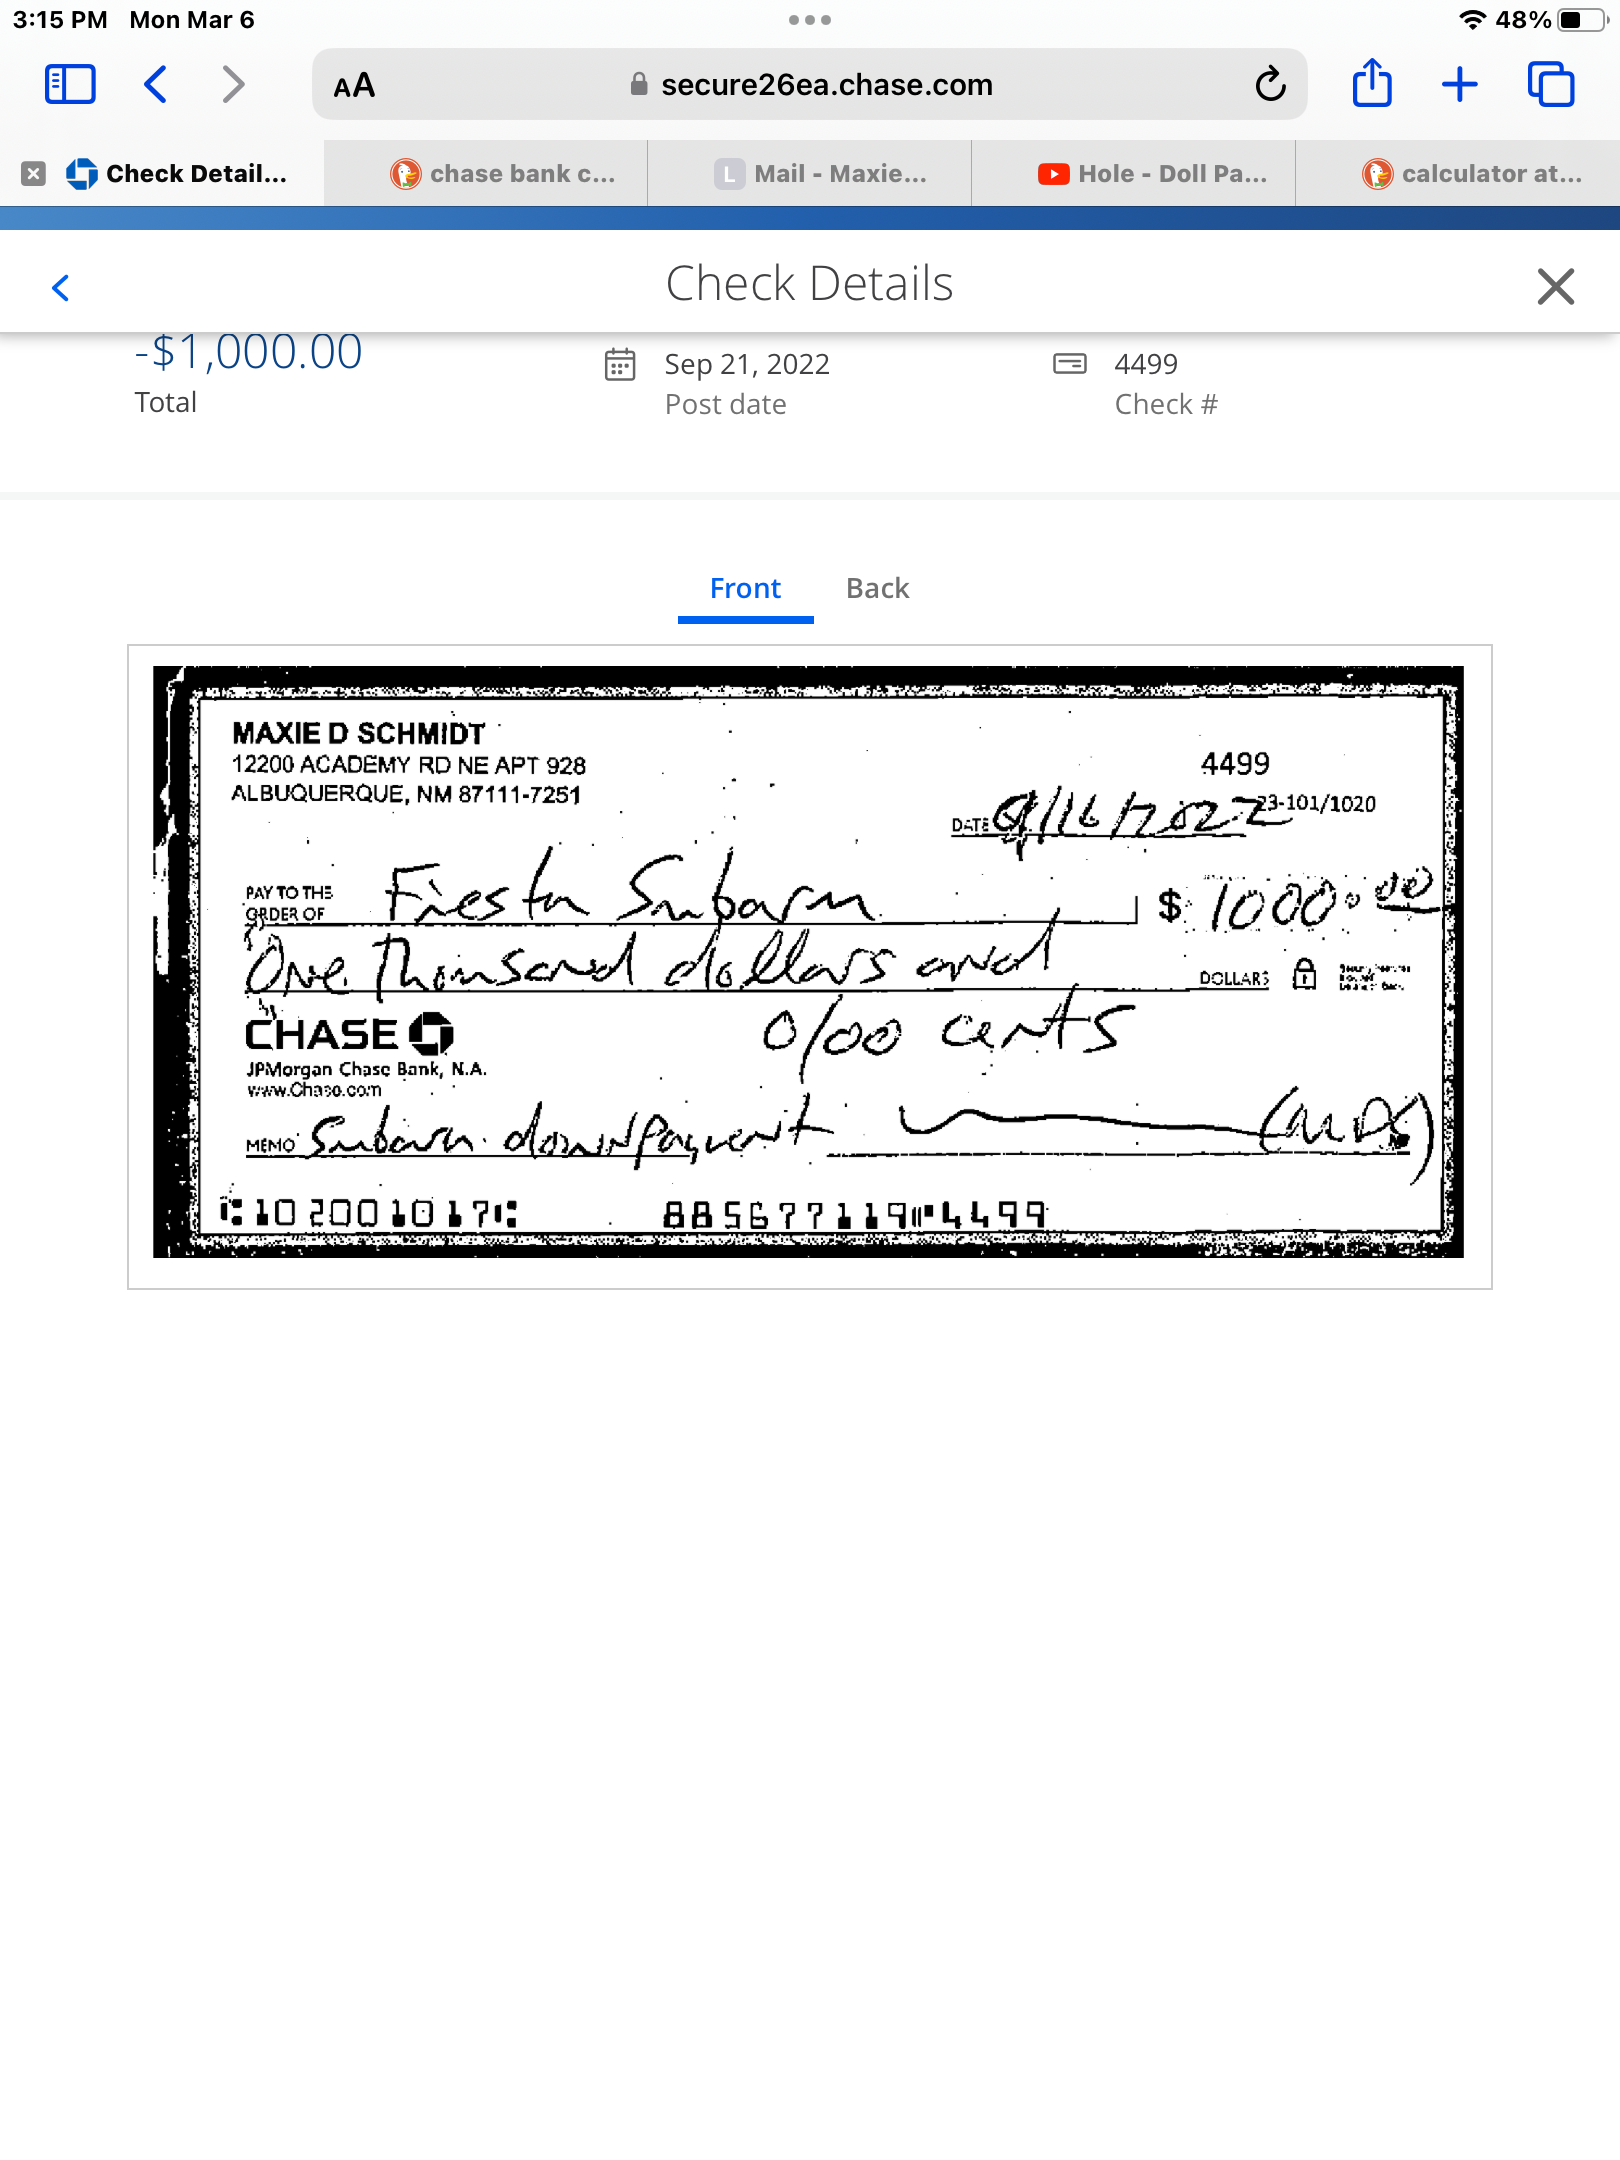 3:15 PM Mon Mar 6
48%
AA
secure26ea.chase.com
Check Detail...
chase bank c...
L Mail - Maxie...
Hole - Doll Pa...
calculator at...
Check Details
-$1,000.00
Total
Sep 21, 2022
Post date
4499
Check #
Front Back
MAXIE D SCHMIDT
12200 ACADEMY RD NE APT 928
ALBUQUERQUE, NM 87111-7251
4499
23-101/1020
DATE 9/16/2022
PAY TO THE
ORDER OF Fiesta Subaru $ 1000.00
One Thousand dollars and DOLLARS
0/00 cents
CHASE
JPMorgan Chase Bank, N.A.
www.Chase.com
MEMO Subaru downpayment (MDS)
⑆102001017⑆ 885677119⑈4499